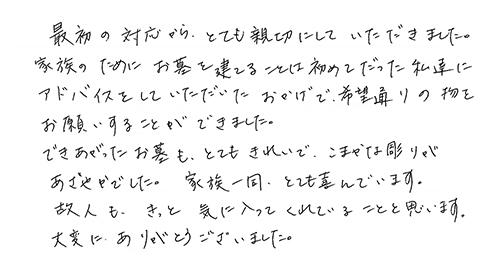 最初の対応から、とても親切にしていただきました。
家族のためにお墓を建てることは初めてだった私達に
アドバイスをしていただいたおかげで、希望通りの物を
お願いすることができました。
できあがったお墓も、とてもきれいで、こまかな彫りが
あざやかでした。 家族一同、とても喜んでいます。
故人も、きっと 気に入ってくれていることと思います。
大変に、ありがとうございました。